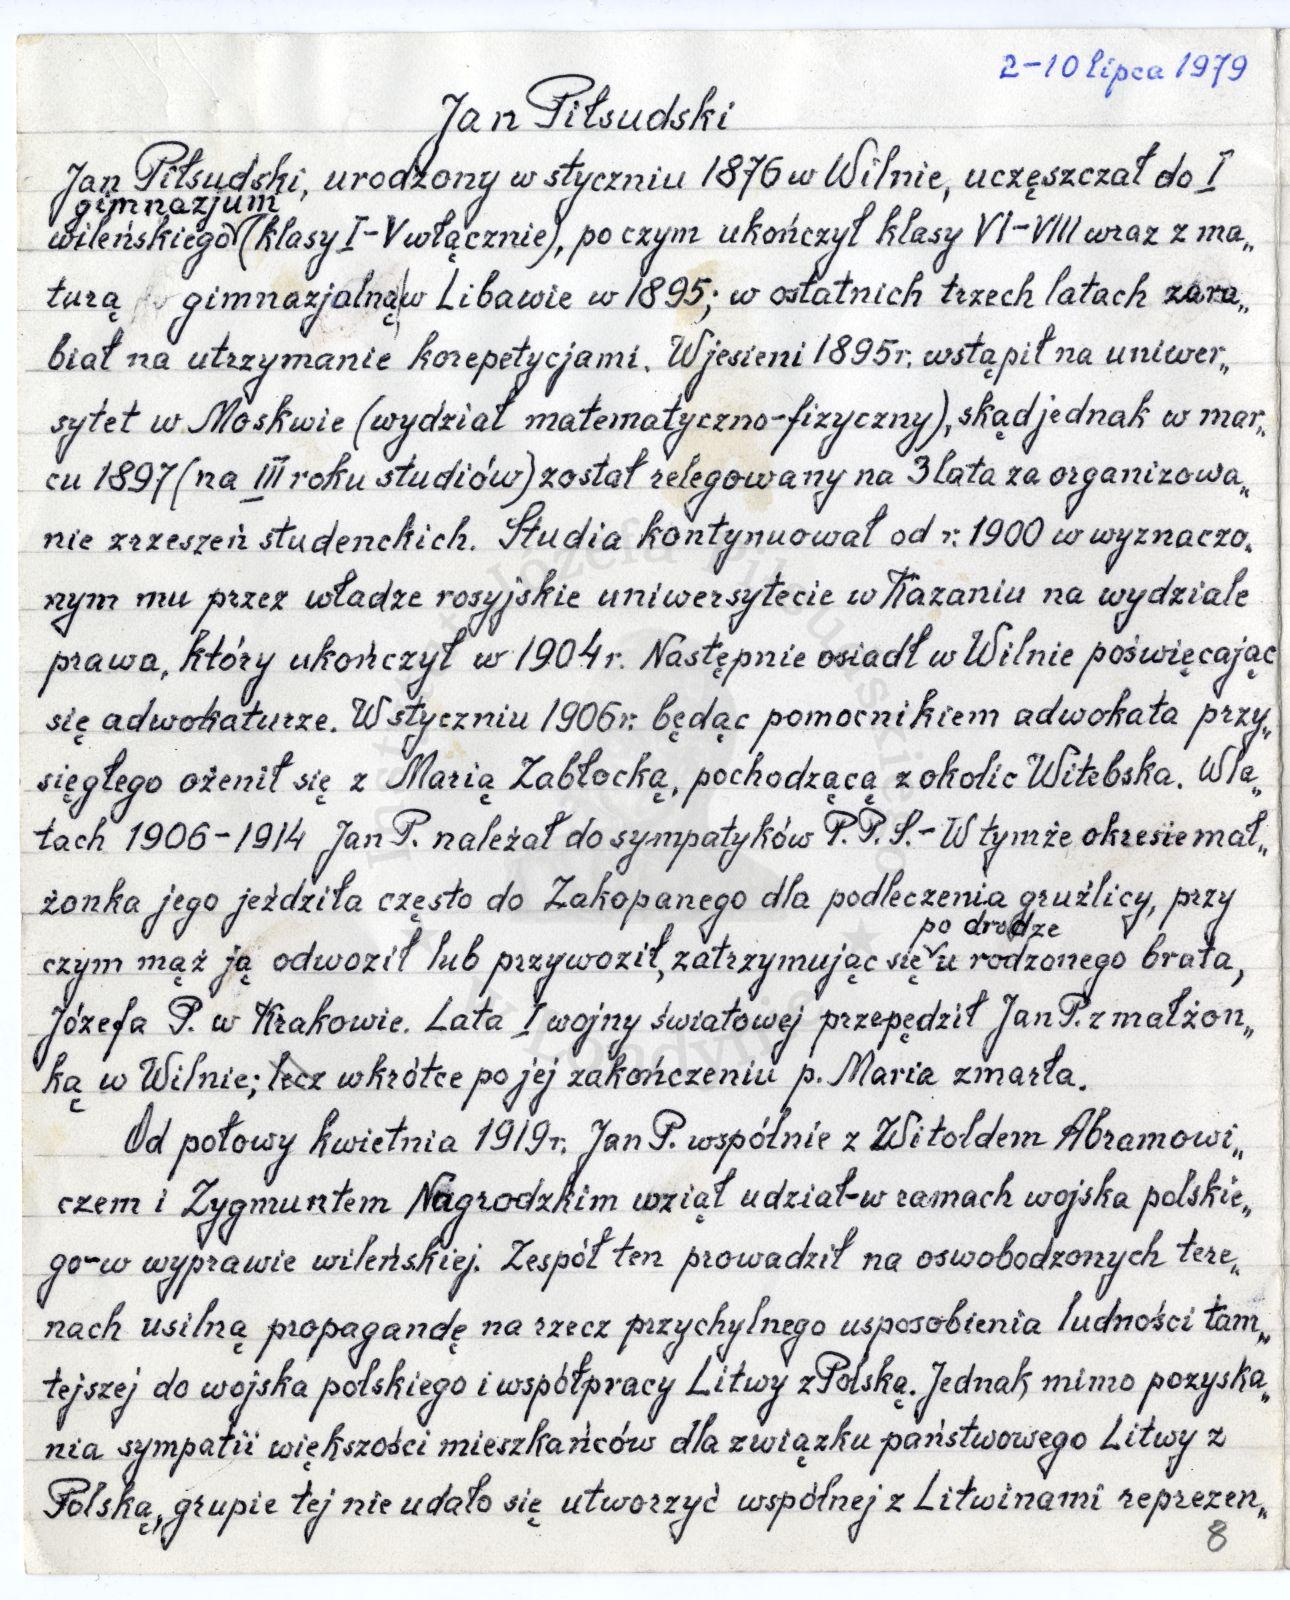 2-10 lipca 1979
Jan Piłsudski
Jan Piłsudski, urodzony w styczniu 1876 w Wilnie, uczęszczał do I
gimnazjum
wileńskiego (klasy I-V włącznie), po czym ukończył klasy VI-VIII wraz z ma„
turą gimnazjalną w Libawie w 1895; w ostatnich trzech latach zara„
biał na utrzymanie korepetycjami. W jesieni 1895 r. wstąpił na uniwer„
sytet w Moskwie (wydział matematyczno-fizyczny), skąd jednak w mar„
cu 1897 (na III roku studiów) został relegowany na 3 lata za organizowa„
nie zrzeszeń studenckich. Studia kontynuował od r. 1900 w wyznaczo„
nym mu przez władze rosyjskie uniwersytecie w Kazaniu na wydziale
prawa, który ukończył w 1904 r. Następnie osiadł w Wilnie poświęcając
się adwokaturze. W styczniu 1906 r. będąc pomocnikiem adwokata przy„
sięgłego ożenił się z Marią Zabłocką, pochodzącą z okolic Witebska. W la„
tach 1906-1914 Jan P. należał do sympatyków P.P.S.- W tymże okresie mał„
żonka jego jeździła często do Zakopanego dla podleczenia gruźlicy, przy
po drodze
czym mąż ją odwoził lub przywoził, zatrzymując się u rodzonego brata,
Józefa P. w Krakowie. Lata I wojny światowej przepędził Jan P. z małżon„
ką w Wilnie; lecz wkrótce po jej zakończeniu p. Maria zmarła.
Od połowy kwietnia 1919 r. Jan P. wspólnie z Witoldem Abramowi„
czem i Zygmuntem Nagrodzkim wziął udział-w ramach wojska polskie„
go-w wyprawie wileńskiej. Zespół ten prowadził na oswobodzonych tere„
nach usilną propagandę na rzecz przychylnego usposobienia ludności tam„
tejszej do wojska polskiego i współpracy Litwy z Polską. Jednak mimo pozyska„
nia sympatii większości mieszkańców dla związku państwowego Litwy z
Polską, grupie tej nie udało się utworzyć wspólnej z Litwinami reprezen„
8